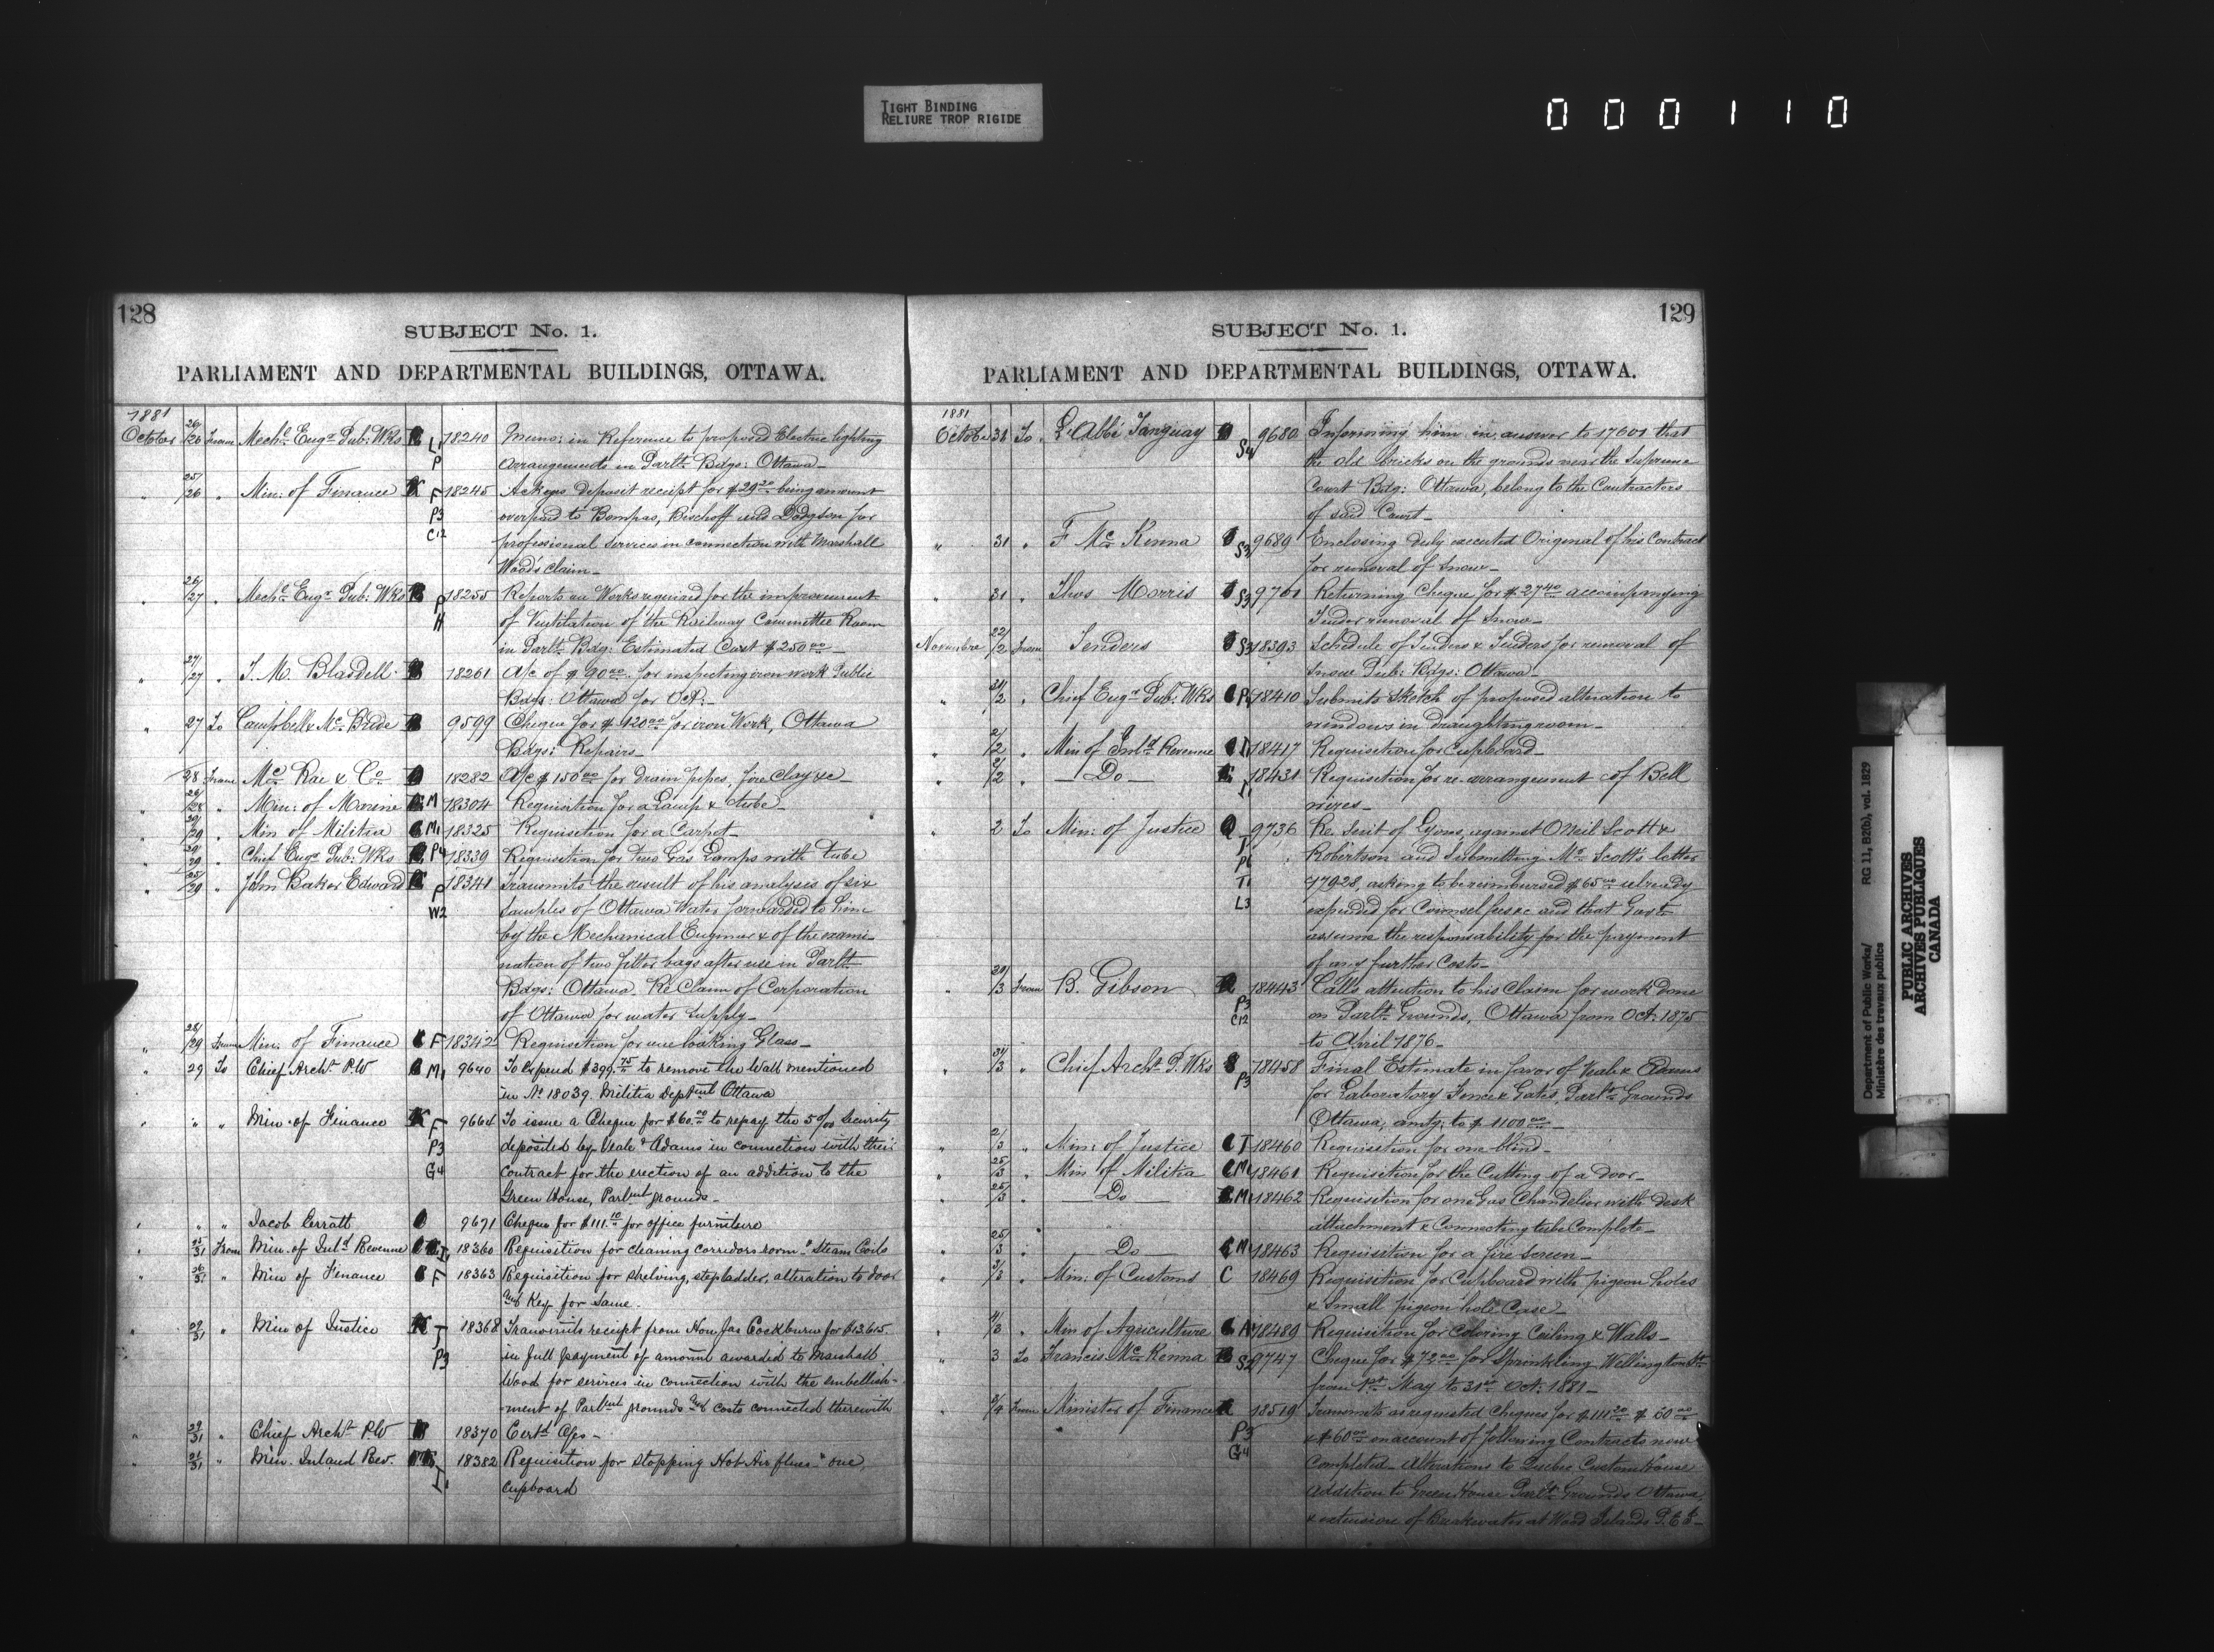 TIGHT BINDING
RELIURE TROP RIGIDE
000110
128
SUBJECT No. 1.
PARLIAMENT AND DEPARTMENTAL BUILDINGS, OTTAWA.
1881
October 26/26 From Mechl Engr Pub: Wks L P 18240 Memo: in Reference to proposed Electric lighting
arrangements in Parlt Bdgs: Ottawa
" 25/26 " Min: of Finance F P3 C12 18245 Ackgs deposit receipt for $29.20 being amount
overpaid to Bompas, Bischoff and Dodgson for
professional services in connection with Marshall
Wood's Claim
" 26/27 " Mechl Engr Pub: Wks P H 18255 Reports on Works required for the improvement
of Ventilation of the Railway Committee Room
in Parlt Bdg: Estimated Cost $250.00
" 27/27 " T. M. Blasdell 18261 A/c of $90.00 for inspecting iron work Public
Bdgs: Ottawa for Oct:
" 27 To Campbell & McBride 9599 Cheque for $120.00 for iron Work, Ottawa
Bdgs: Repairs
28 From McRae & Co 18282 A/c $150.00 for Drain pipes, fire Clay &c
" 28 " Min: of Marine M 18304 Requisition for a Lamp & tube
" 29 " Min of Militia M1 18325 Requisition for a Carpet
" 29 " Chief Engr Pub: Wks P4 18339 Requisition for two Gas Lamps with tube
" 25/29 " John Baker Edwards P W2 18341 Transmits the result of his analysis of six
samples of Ottawa Water forwarded to him
by the Mechanical Engineer & of the exami-
nation of two filter bags after use in Parlt
Bdgs: Ottawa. Re Claim of Corporation
of Ottawa for water supply
" 28/29 From Min: of Finance F 18342 Requisition for one looking Glass
" 29 To Chief Archt P.W M1 9640 To Expend $399.75 to remove the Wall mentioned
in No 18039. Militia Deptment Ottawa
" " " Min. of Finance F P3 G4 9664 To issue a Cheque for $60.00 to repay the 5 o/o Security
deposited by Veale & Adams in connection with their
contract for the erection of an addition to the
Green House, Parlment grounds
" " " Jacob Erratt 9671 Cheque for $111.10 for office furniture
" 31 From Min. of Inld Revenue I1 18360 Requisition for cleaning corridors rooms & Steam Coils
" 26/31 " Min of Finance F 18363 Requisition for shelving, stepladder, alteration to door
and Key for same.
" 29/31 " Min of Justice J P3 18368 Transmits receipt from Hon Jas Cockburn for $13.615
in full payment of amount awarded to Marshall
Wood for services in connection with the embellish-
ment of Parlment grounds and costs connected therewith
" 29/31 " Chief Archt P.W 18370 Certd A/cs
" 31/31 " Min. Inland Rev. I1 18382 Requisition for stopping Hot Air flues & one
cupboard
129
SUBJECT No. 1.
PARLIAMENT AND DEPARTMENTAL BUILDINGS, OTTAWA.
1881
October 31 To L'Abbé Tanguay S4 9680 Informing him in answer to 17601 that
the old bricks on the grounds near the Supreme
Court Bdg: Ottawa, belong to the Contractors
of said Court
" 31 " F McKenna S3 9689 Enclosing duly executed Original of his Contract
for removal of Snow
" 31 " Thos Morris S3 9701 Returning Cheque for $27.40 accompanying
Tender removal of Snow
Novembre 22/2 From Tenders S3 18393 Schedule of Tenders & Tenders for removal of
Snow Pub: Bdgs: Ottawa
" 31/2 " Chief Engr Pub: Wks P4 18410 Submits sketch of proposed alteration to
windows in draughting room
" 2/2 " Min of Inld Revenue I1 18417 Requisition for Cupboard
" 2/2 " Do I1 18431 Requisition for re-arrangement of Bell
wires
" 2 To Min: of Justice J P6 T1 L3 9736 Re. Suit of Lyons, against O'Neil Scott &
Robertson and Submitting Mr Scott's letter
17928, asking to be reimbursed $65.00 already
expended for Counsel fees &c and that Govt
assume the responsability for the payment
of any further Costs
" 29/3 From B. Gibson P3 C12 18443 Calls attention to his Claim for work done
on Parlt Grounds, Ottawa from Oct: 1875
to April 1876
" 31/3 " Chief Archt P. Wks P3 18458 Final Estimate in favor of Veale & Adams
for Laboratory Fence & Gates, Parlt Grounds
Ottawa, amtg: to $1100.00
" 2/3 " Min: of Justice J 18460 Requisition for one blind
" 25/3 " Min of Militia M1 18461 Requisition for the Cutting of a Door
" 25/3 " Do M1 18462 Requisition for one Gas Chandelier with desk
attachment & Connecting tube Complete
" 25/3 " Do M1 18463 Requisition for a fire Screen
" 3/3 " Min: of Customs C 18469 Requisition for Cupboard with pigeon holes
& small pigeon hole Case
" " Min of Agriculture A 18489 Requisition for Coloring Ceiling & Walls
" 3 To Francis McKenna S2 9747 Cheque for $72.00 for Sprinkling Wellington St
from 1st May to 31st Oct: 1881
" 3/4 From Minister of Finance P3 G4 18519 Transmits as requested Cheques for $111.20 $50.00
& $60.00 on account of following Contracts now
completed. Alterations to Quebec Custom House
addition to Green House Parlt Grounds Ottawa,
& extension of Breakwater at Wood Islands P.E.I.
Department of Public Works/
Ministère des travaux publics
RG 11, B2(b), vol. 1829
PUBLIC ARCHIVES
ARCHIVES PUBLIQUES
CANADA